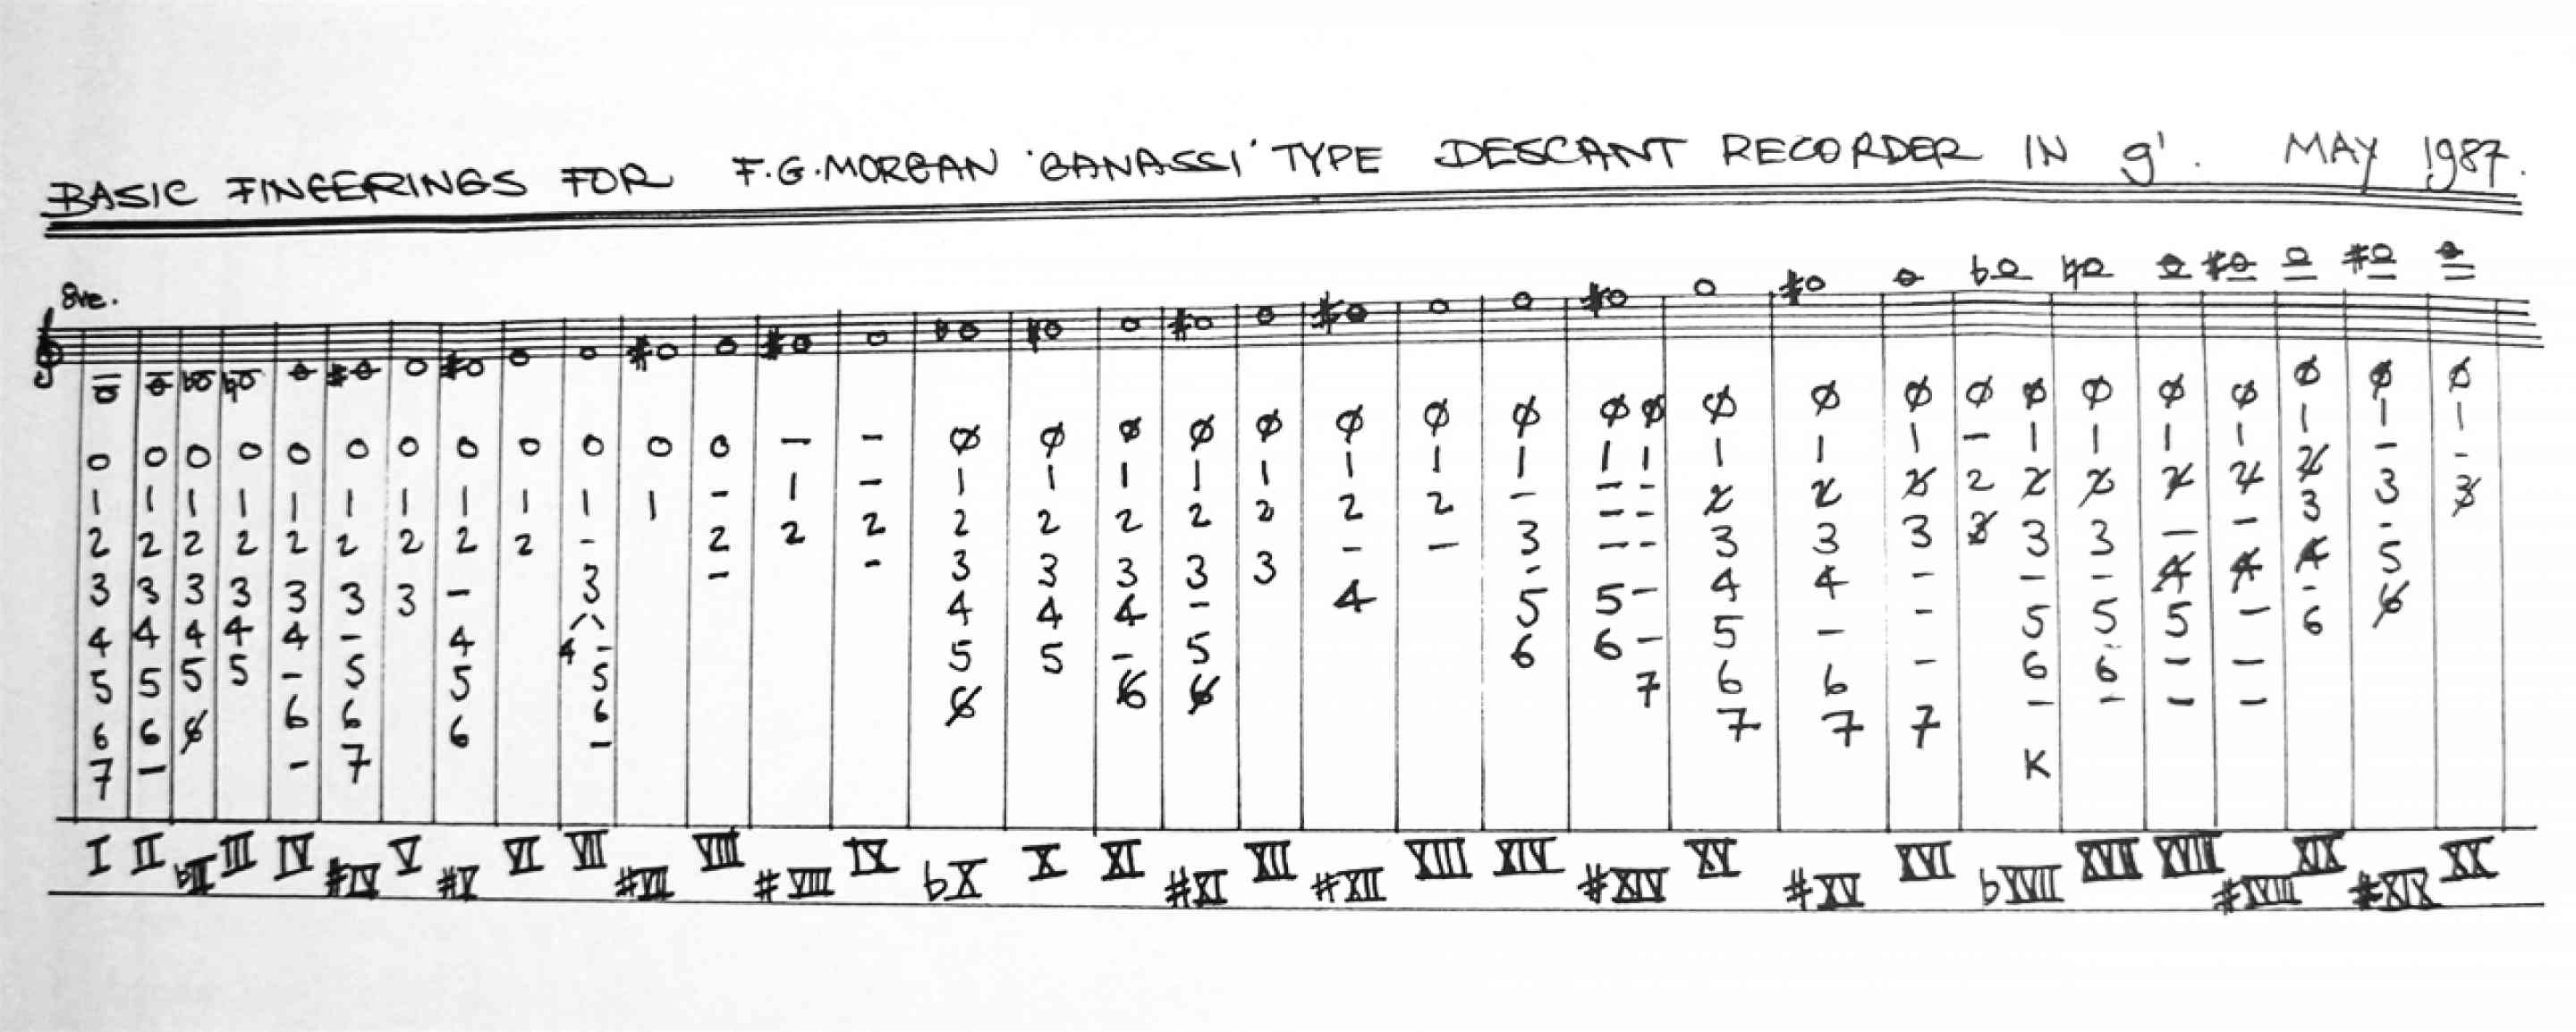 BASIC FINGERINGS FOR F.G.MORGAN 'GANASSI' TYPE DESCANT RECORDER IN g'. MAY 1987.
8ve.
0 0 0 0 0 0 0 0 0 0 0 0 – – Ø Ø Ø Ø Ø Ø Ø Ø Ø Ø Ø Ø Ø Ø Ø Ø Ø Ø Ø Ø Ø
1 1 1 1 1 1 1 1 1 1 1 – 1 – 1 1 1 1 1 1 1 1 1 1 1 1 1 – 1 1 1 1 1 1 1
2 2 2 2 2 2 2 2 2 – 2 2 2 2 2 2 2 2 2 2 – – – 2̸ 2̸ 2̸ 2 2̸ 2̸ 2̸ 2̸ 2̸ – –
3 3 3 3 3 3 3 – 3 – – 3 3 3 3 3 – – 3 – – 3 3 3 3̸ 3 3 – – 3 3 3̸
4 4 4 4 4 – 4 4 – 4 4 4 – 4 – – – 4 4 – – – 4̸ 4̸ 4̸ –
5 5 5 5 – 5 5 5 5 5 – 5 5 5 – 5 – – 5 5 5 – – 5
6 6 6̸ 6 6 6 6 6̸ 6̸ 6̸ 6 6 – 6 6 – 6 6 – – 6 6̸
7 – – 7 – 7 7 7 7 – – – –
K
I II bII III IV #IV V #V VI VII #VII VIII #VIII IX bX X XI #XI XII #XII XIII XIV #XIV XV #XV XVI bXVII XVII XVIII #XVIII XIX #XIX XX